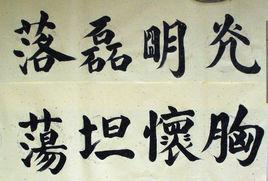 光明磊落
胸懷坦蕩